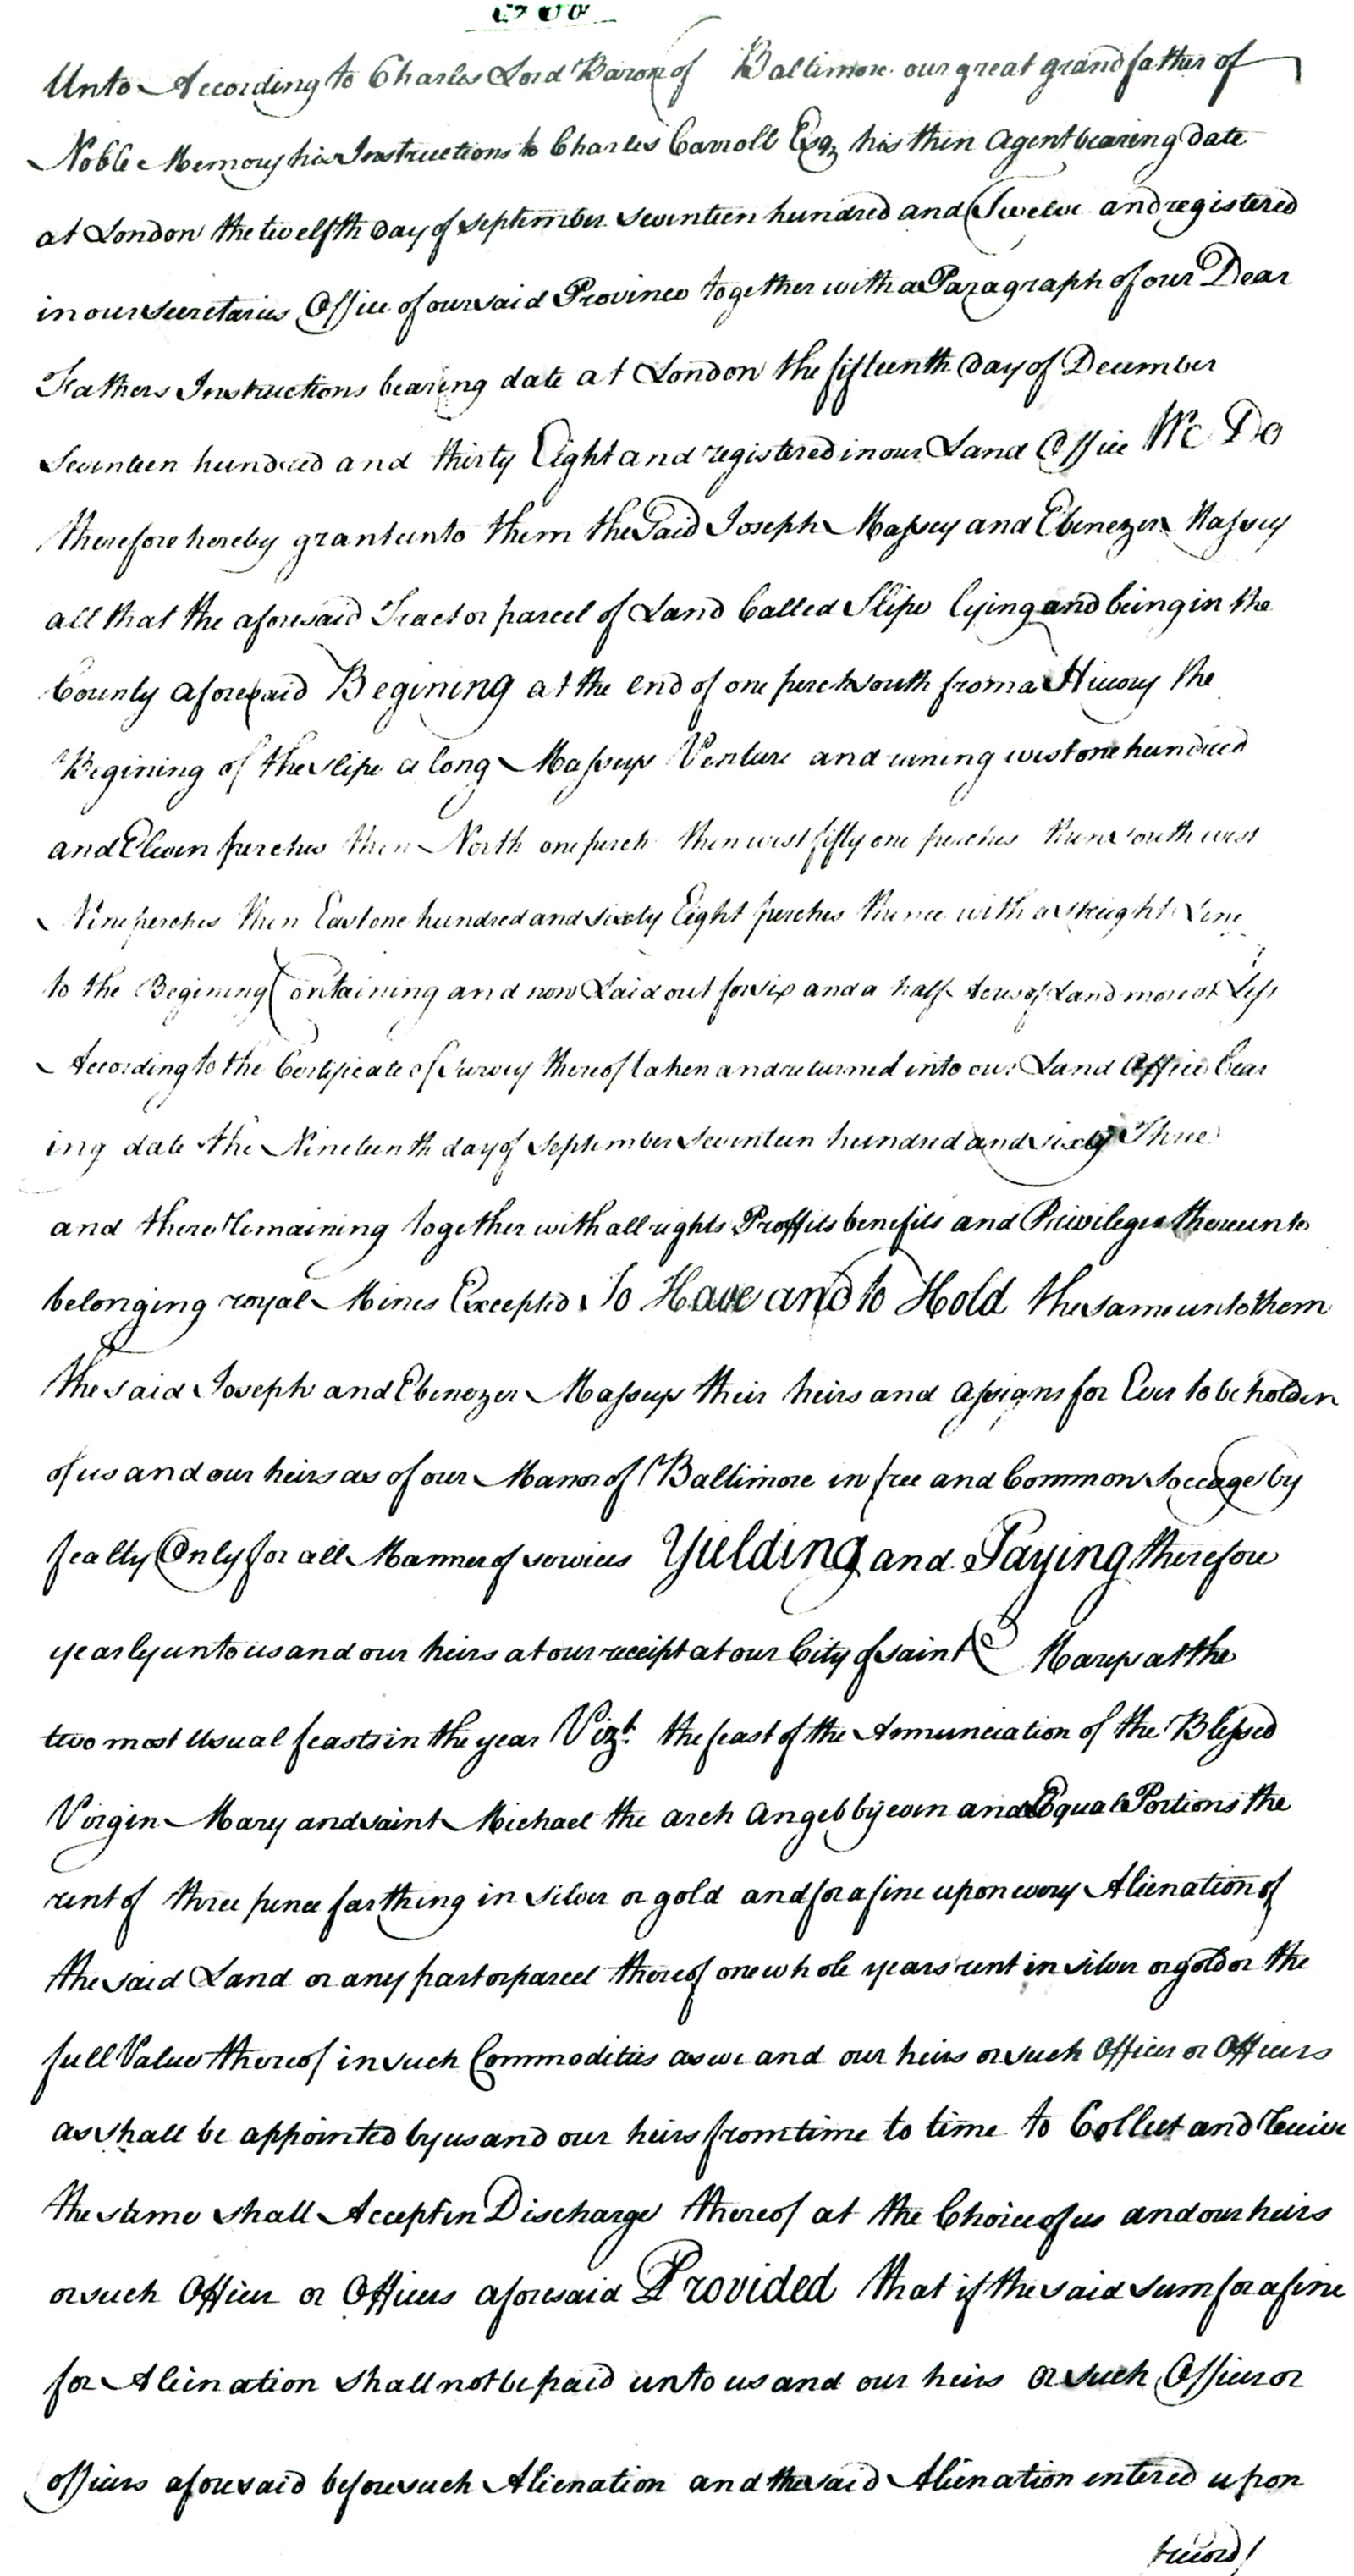 Unto According to Charles Lord Baron of Baltimore our great grandfather of
Noble Memory his Instructions to Charles Carroll Esqr his then Agent bearing date
at London the twelfth day of september seventeen hundred and Twelve and registered
in our secretarius Office of our said Province together with a Paragraph of our Dear
Fathers Instructions bearing date at London the fifteenth day of December
Seventeen hundred and thirty Eight and registered in our Land Office We Do
therefore hereby grant unto them the Said Joseph Massey and Ebenezer Massey
all that the aforesaid Tract or parcel of Land Called Slipe lying and being in the
County aforesaid Begining at the end of one perch south from a Hicory the
Begining of the slipe a long Masseys Venture and runing west one hundred
and Eleven perches then North one perch then west fifty one perches then south west
Nine perches then East one hundred and sixty Eight perches thence with a streight Line
to the Begining Containing and now Laid out for six and a half Acres of Land more or Less
According to the Certificate of Survey thereof taken and returned into our Land Office bear
ing date the Nineteenth day of September seventeen hundred and sixty Three
and there Remaining together with all rights Proffits benefits and Privileges thereunto
belonging royal Mines Excepted To Have and to Hold the same unto them
the said Joseph and Ebenezer Masseys their heirs and assigns for Ever to be holden
of us and our heirs as of our Manor of Baltimore in free and Common Soccage by
fealty Only for all Manner of services Yielding and Paying therefore
yearly unto us and our heirs at our receipt at our City of saint Marys at the
two most Usual feasts in the year Vizt. the feast of the Annunciation of the Blessed
Virgin Mary and saint Michael the arch Angel by even and Equal Portions the
rent of three pence farthing in silver or gold and for a fine upon every Alienation of
the said Land or any part or parcel thereof one whole years rent in silver or gold or the
full Value thereof in such Commodities as we and our heirs or such Officer or Officers
as shall be appointed by us and our heirs from time to time to Collect and Receive
the same shall Accept in Discharge thereof at the Choice of us and our heirs
or such Officer or Officers aforesaid Provided that if the said sum for a fine
for Alienation shall not be paid unto us and our heirs or such Officer or
officers aforesaid before such Alienation and the said Alienation entered upon
record